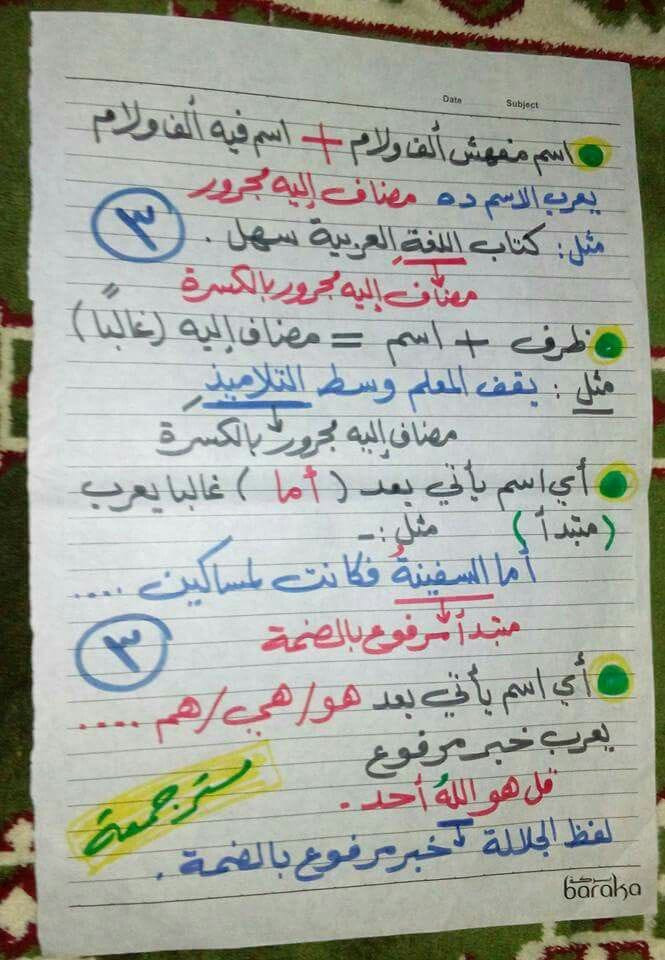 Date Subject
اسم مفهش ألف ولام + اسم فيه ألف ولام
يعرب الاسم ده مضاف إليه مجرور
٣
مثل: كتاب اللغةِ العربية سهل.
مضاف إليه مجرور بالكسرة
ظرف + اسم = مضاف إليه (غالبًا)
مثل: يقف المعلم وسط التلاميذِ
مضاف إليه مجرور بالكسرة
أي اسم يأتي بعد (أما) غالبا يعرب
(مبتدأ) مثل:-
أما السفينةُ فكانت لمساكين ....
مبتدأ مرفوع بالضمة
٣
أي اسم يأتي بعد هو/هي/هم ....
يعرب خبر مرفوع
قل هو اللهُ أحد.
مستر جمعة
لفظ الجلالة خبر مرفوع بالضمة.
بركة
baraka